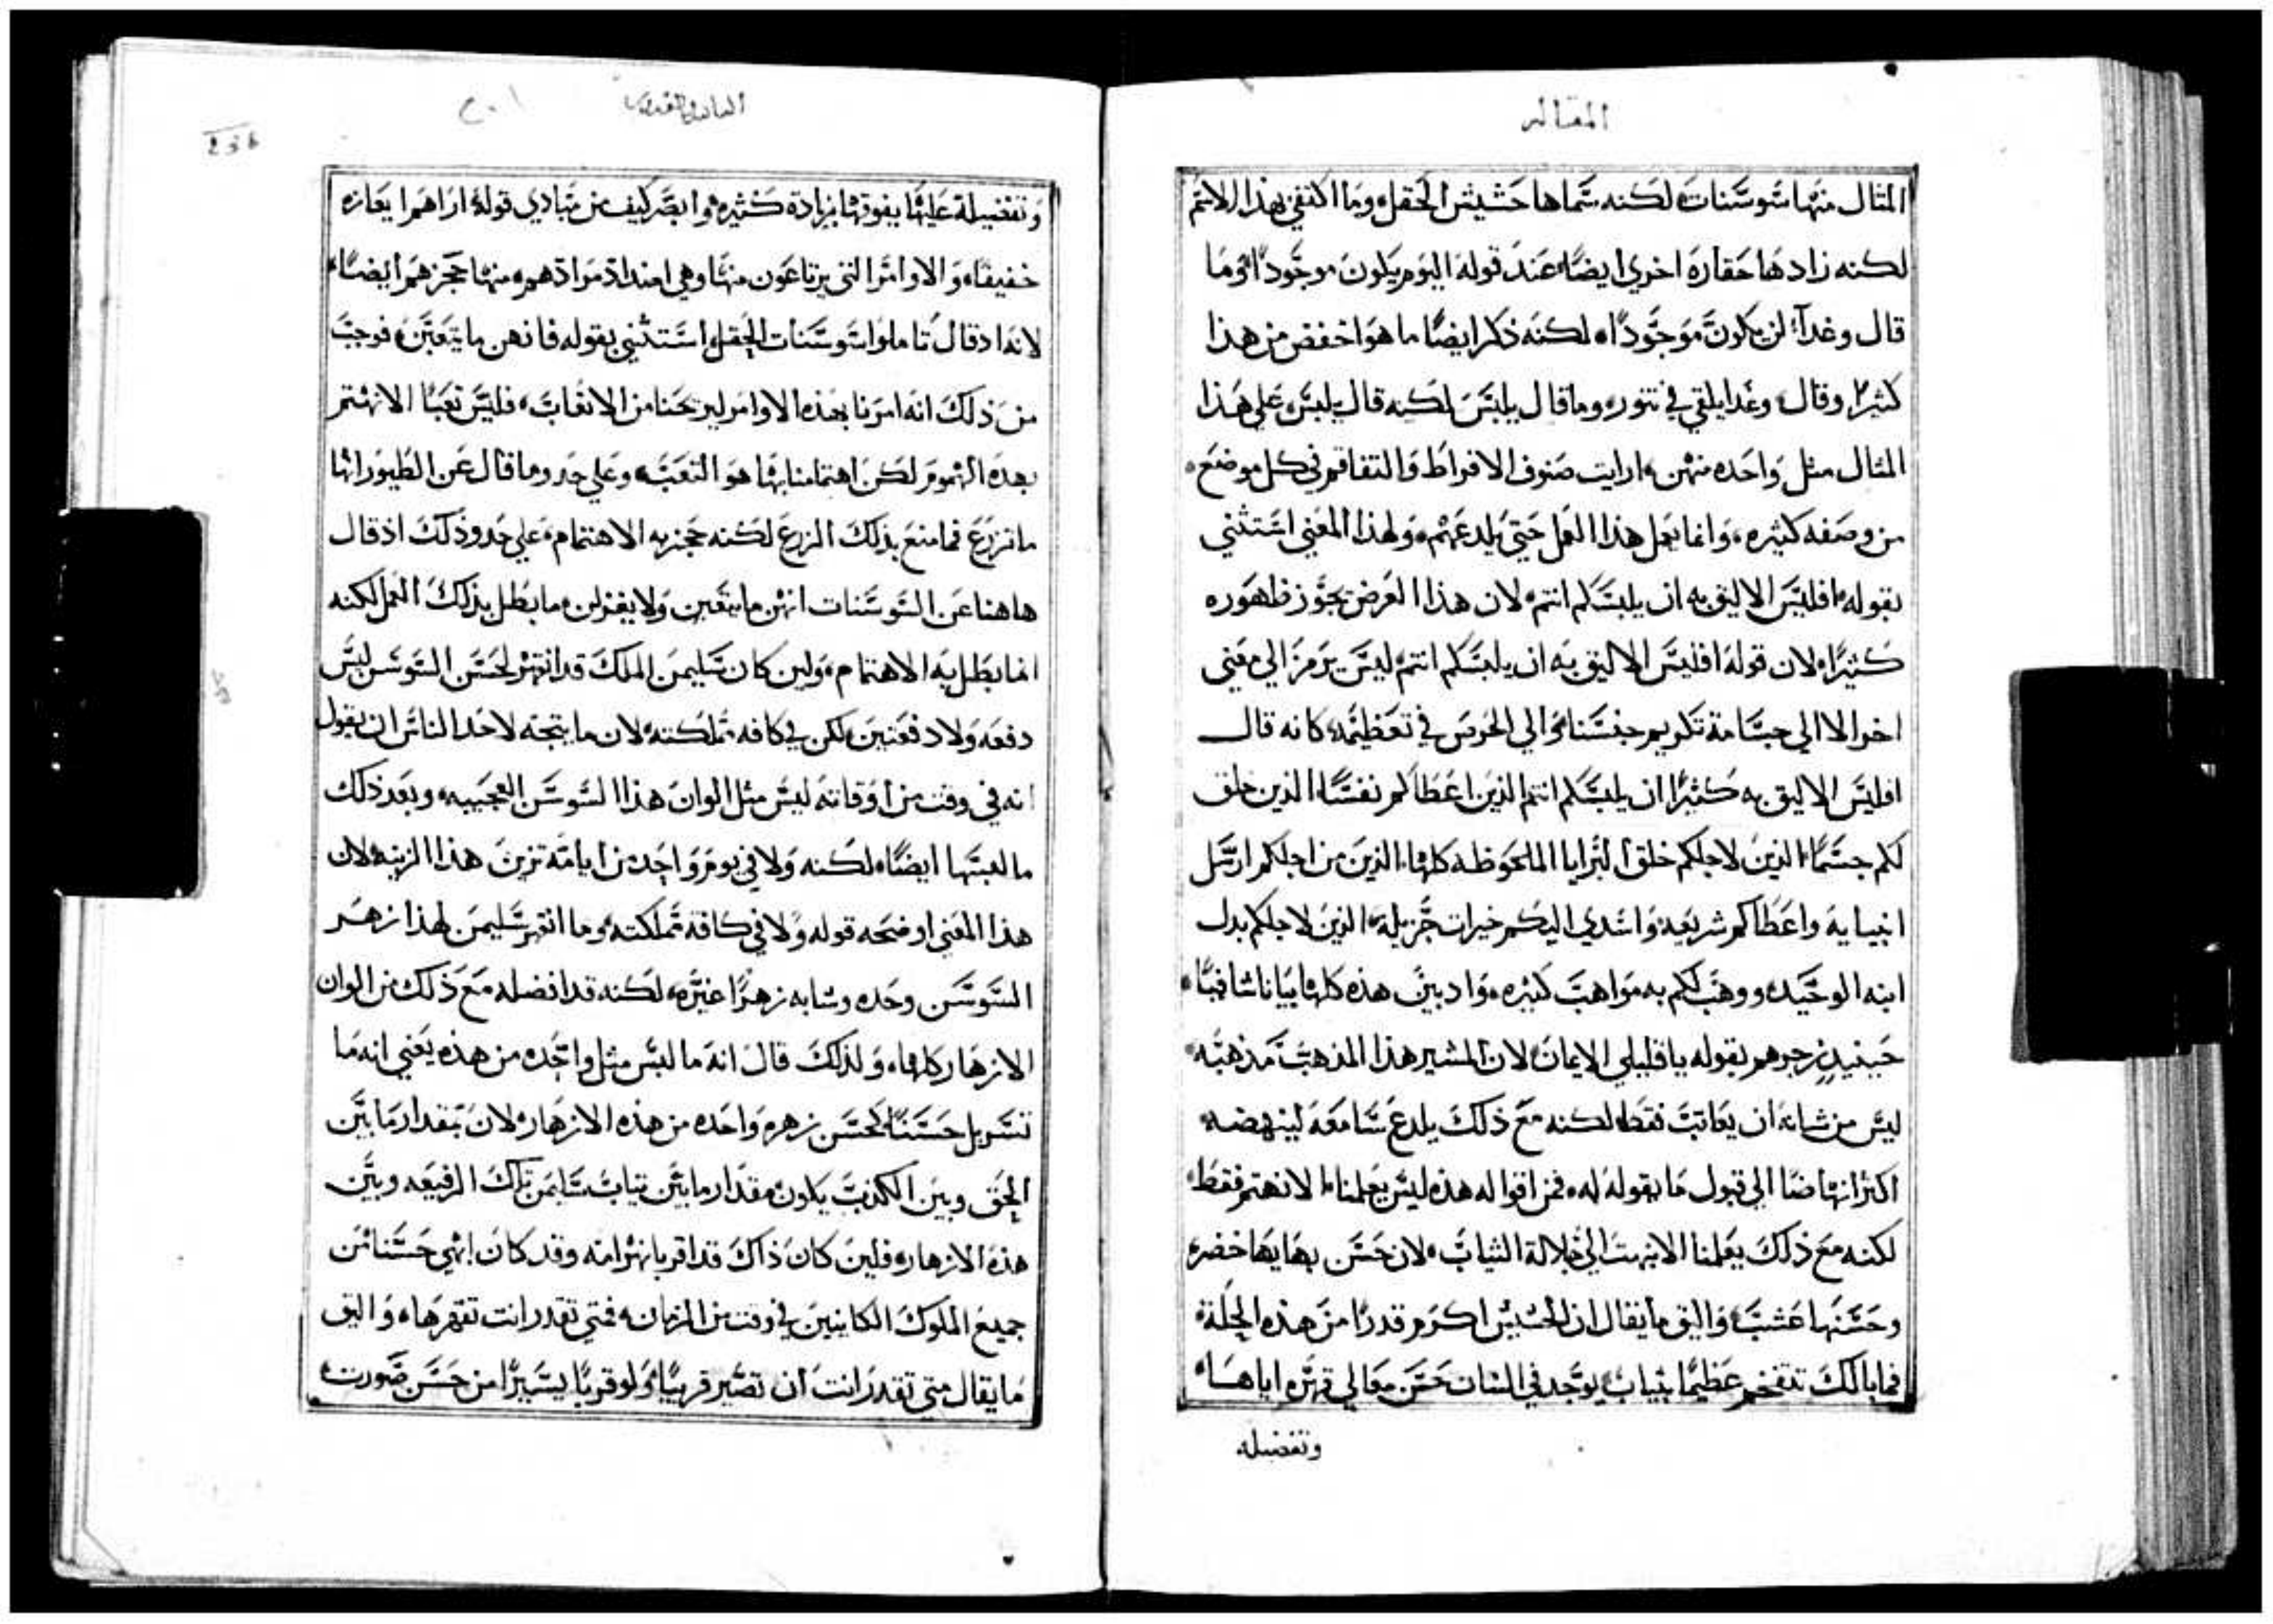 المقاله
المثال منها سوسنات لكنه سماها حشيش الحقل وما اكتفي بهذا الاسم
لكنه زادها حقاره اخري ايضا عند قوله اليوم يكون موجودا وما
قال وغدا لن يكون موجودا لكنه ذكر ايضا ما هو اخفض من هذا
كثيرا وقال وغدا يلقي في تنور وما قال يلبس لكنه قال يلبس علي هذا
المثال مثل واحده منهن ارايت صنوف الافراط والتفاقم في كل موضع
من وصفه كثيره وانما يعمل هذا العمل حتي يلدعهم ولهذا المعني استثني
بقوله افليس الاليق به ان يلبسكم انتم لان هذا العرض يجوز ظهوره
كثيرا لان قوله افليس الاليق به ان يلبسكم انتم ليس يرمز الي معني
اخر الا الي جسامة تكريم جنسنا والي الحرص في تعظيمه كانه قال
افليس الاليق به كثيرا ان يلبسكم انتم الذين اعطاكم نفسا الذين خلق
لكم جسما الذين لاجلكم خلق البرايا الملحوظه كلها الذين من اجلكم ارسل
انبيايه واعطاكم شريعه واسدي اليكم خيرات جزيلة الذين لاجلكم بدل
ابنه الوحيد ووهب لكم به مواهب كثيره واد بين هذه كلها بيانا شافيا
حينيد زجرهم بقوله يا قليلي الايمان لان المشير هذا المذهب مذهبه
ليس من شانه ان يعاتب فقط لكنه مع ذلك يلدع سامعه لينهضه
اكثر انهاضا الي قبول ما يقوله له فمن اقواله هذه ليس يعلمنا الا نهتم فقط
لكنه مع ذلك يعلمنا الا نبهت الي جلالة الثياب لان حسن بهايها خضره
وحسنها عشب واليق ما يقال ان الحشيش اكرم قدرا من هذه الحلة
فما بالك تتفخم عظيما بثياب يوجد في النبات حسن معالي قهره اياها
وتفضيله
وتفضيلة عليها يفوقها بزيادة كثيره وابصر كيف من مبادي قوله اراهم ايعازه
خفيفا والاوامر التي يرتاعون منها وهي امتداد مرادهم منها حجزهم ايضا
لانه اد قال تاملوا سوسنات الحقل استثني بقوله فانهن ما يتعبن فوجب
من ذلك انه امرنا بهذه الاوامر ليريحنا من الاتعاب فليس تعبا الا نهتم
بهذه الهموم لكن اهتمامنا بها هو التعب وعلي حذو ما قال عن الطيور انها
ما تزرع فما منع بذلك الزرع لكنه حجز به الاهتمام علي حدو ذلك اذ قال
هاهنا عن السوسنات انهن ما يتعبن ولا يغزلن ما بطل بذلك العمل لكنه
انما بطل به الاهتمام ولين كان سليمن الملك قد انقهر لحسن السوسن ليس
دفعه ولا دفعتين لكن في كافه مملكته لان ما يتجه لاحد الناس ان يقول
انه في وقت من اوقاته لبس مثل الوان هذا السوسن العجيبه وبعد ذلك
ما لبسها ايضا لكنه ولا في يوم واحد من ايامه تزين هذا الزينه لان
هذا المعني اوضحه قوله ولا في كافة مملكته وما انقهر سليمن لهذا زهر
السوسن وحده وشابه زهرا غيره لكنه قد افضله مع ذلك من الوان
الازهار كلها ولذلك قال انه ما لبس مثل واحده من هذه يعني انه ما
تسربل حسنا كحسن زهره واحده من هذه الازهار لان بمقدار ما بين
الحق وبين الكذب يكون مقدار ما بين ثياب سليمن تلك الرفيعه وبين
هذه الازهار فلين كان ذاك قد اقر بانهزامه وقد كان ابهي حسنا من
جميع الملوك الكاينين في وقت من الزمان فمتي تقدر انت تقهرها واليق
ما يقال متي تقدر انت ان تصير قريبا ولو قربا يسيرا من حسن صورت